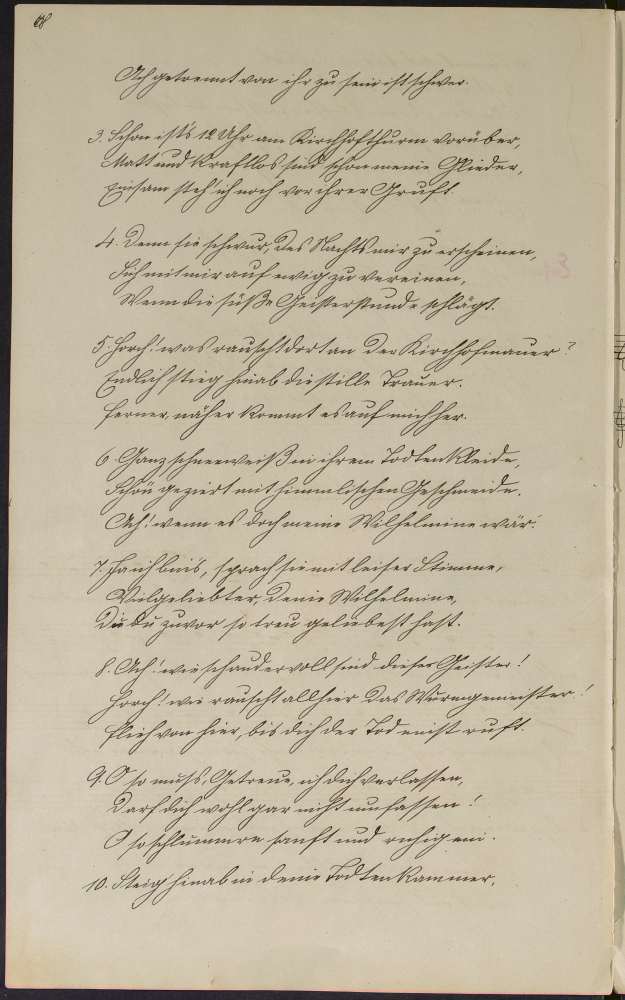 68
Ach getrennt von ihr zu sein ist schwer.
3. Schon ist's 12 Uhr am Kirchhofthurm vorüber,
Matt und kraftlos sind schon meine Glieder,
Einsam steh' ich noch vor ihrer Gruft.
4. Denn sie schwur, des Nachts mir zu erscheinen,
Sich mit mir auf ewig zu vereinen,
Wenn die süße Geisterstunde schlägt.
5. Horch! was rauscht dort an der Kirchhofmauer?
Endlich stieg hinab die stille Trauer.
Ferner, näher kommt es auf mich her.
6. Ganz schneeweiß in ihrem Todtenkleide,
Schön geziert mit himmlischen Geschmeide.
Ach! wenn es doch meine Wilhelmine wär'.
7. Ja ich bin's, sprach sie mit leiser Stimme,
Vielgeliebter, Deine Wilhelmine,
Die du zuvor so treu geliebest hast.
8. Ach! wie schaudervoll sind dieser Geister!
Horch! wie rauscht allhier das Wurmgemeister!
Flieh von hier, bis dich der Tod einst ruft.
9. O so muß, Getreue, ich dich verlassen,
Darf dich wohl gar nicht umfassen!
O so schlummre sanft und ruhig ein.
10. Steig hinab in deine Todtenkammer,